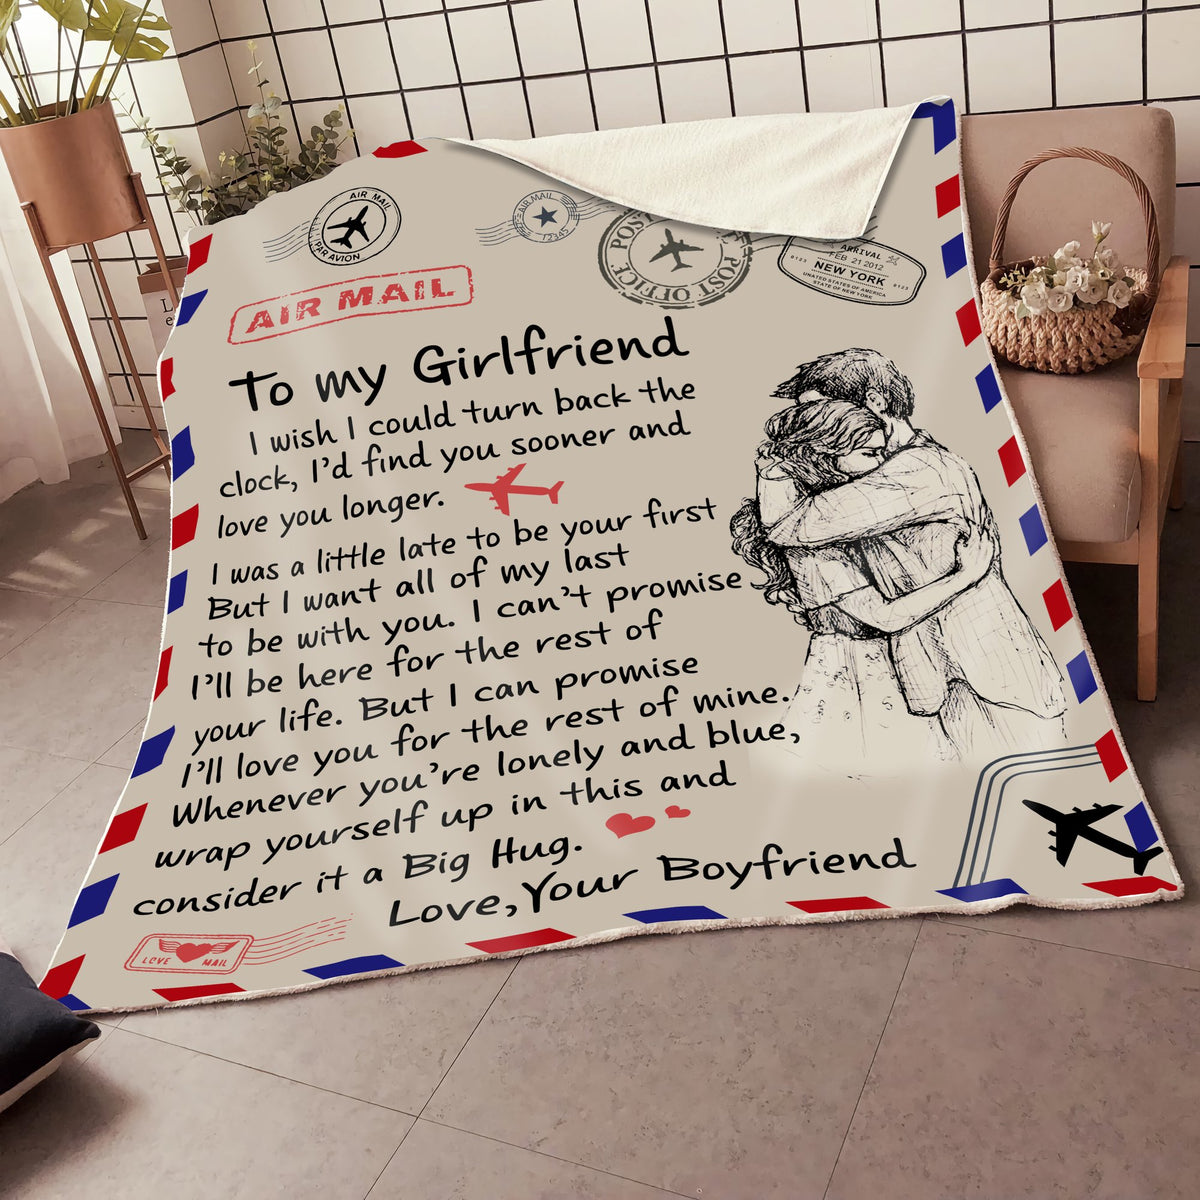 AIR MAIL
PAR AVION
AIR MAIL
12345
POST OFFICE
ARRIVAL
FEB 21 2012
0123 NEW YORK 0123
UNATED STATES OF AMERICA
STATE OF NEW YORK
AIR MAIL
To my Girlfriend
I wish I could turn back the
clock, I'd find you sooner and
love you longer.
I was a little late to be your first
But I want all of my last
to be with you. I can't promise
I'll be here for the rest of
your life. But I can promise
I'll love you for the rest of mine.
Whenever you're lonely and blue,
wrap yourself up in this and
consider it a Big Hug.
Love, Your Boyfriend
LOVE MAIL